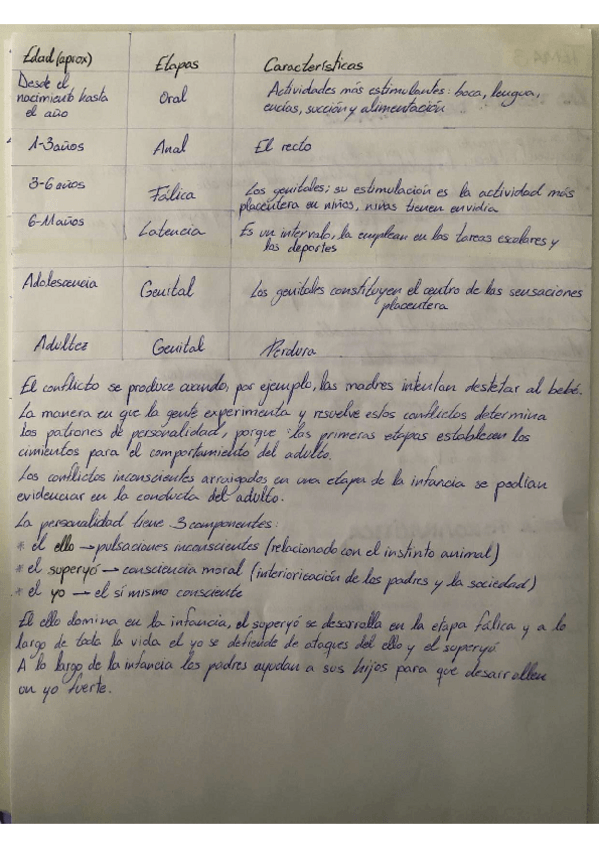 Edad (aprox) Etapas Características
Desde el
nacimiento hasta
el año
Oral
Actividades más estimulantes: boca, lengua,
encías, succión y alimentación
1-3 años Anal El recto
3-6 años Fálica
Los genitales; su estimulación es la actividad más
placentera en niños, niñas tienen envidia
6-11 años Latencia
Es un intervalo, la emplean en las tareas escolares y
los deportes
Adolescencia Genital
Los genitales constituyen el centro de las sensaciones
placentera
Adultez Genital Perdura
El conflicto se produce cuando, por ejemplo, las madres intentan destetar al bebé.
La manera en que la gente experimenta y resuelve estos conflictos determina
los patrones de personalidad, porque las primeras etapas establecen los
cimientos para el comportamiento del adulto.
Los conflictos inconscientes arraigados en una etapa de la infancia se podían
evidenciar en la conducta del adulto.
La personalidad tiene 3 componentes:
* el ello → pulsaciones inconscientes (relacionado con el instinto animal)
* el superyó → consciencia moral (interiorización de los padres y la sociedad)
* el yo → el sí mismo consciente
El ello domina en la infancia, el superyó se desarrolla en la etapa fálica y a lo
largo de toda la vida el yo se defiende de ataques del ello y el superyó
A lo largo de la infancia los padres ayudan a sus hijos para que desarrollen
un yo fuerte.